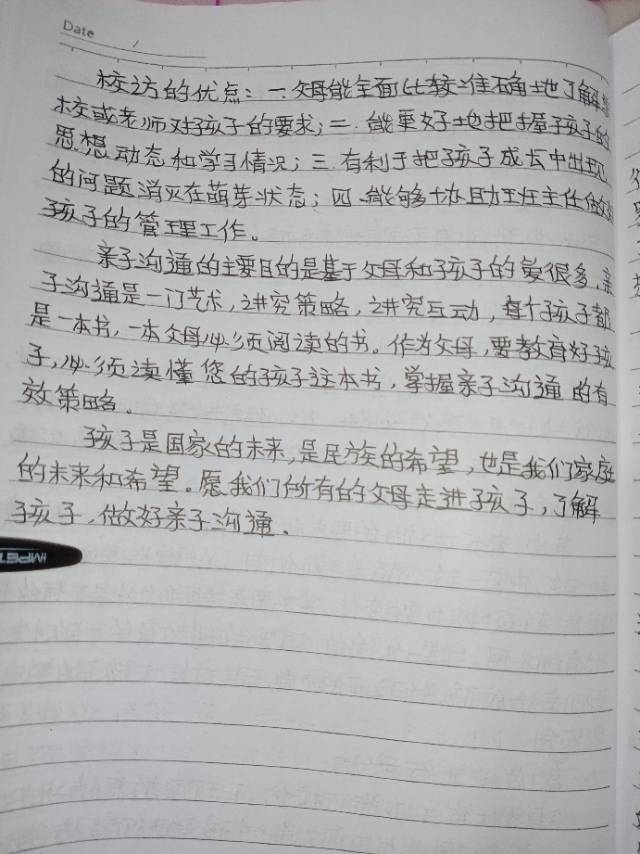 Date /
校访的优点：一.父母能全面比较准确地了解
校或老师对孩子的要求；二.能更好地把握孩子的
思想动态和学习情况；三.有利于把孩子成长中出现
的问题消灭在萌芽状态；四.能够协助班主任做好
孩子的管理工作。
亲子沟通的主要目的是基于父母和孩子的爱很多，亲
子沟通是一门艺术，讲究策略，讲究互动，每个孩子都
是一本书，一本父母必须阅读的书。作为父母，要教育好孩
子，必须读懂您的孩子这本书，掌握亲子沟通的有
效策略。
孩子是国家的未来，是民族的希望，也是我们家庭
的未来和希望。愿我们所有的父母走进孩子，了解
孩子，做好亲子沟通。